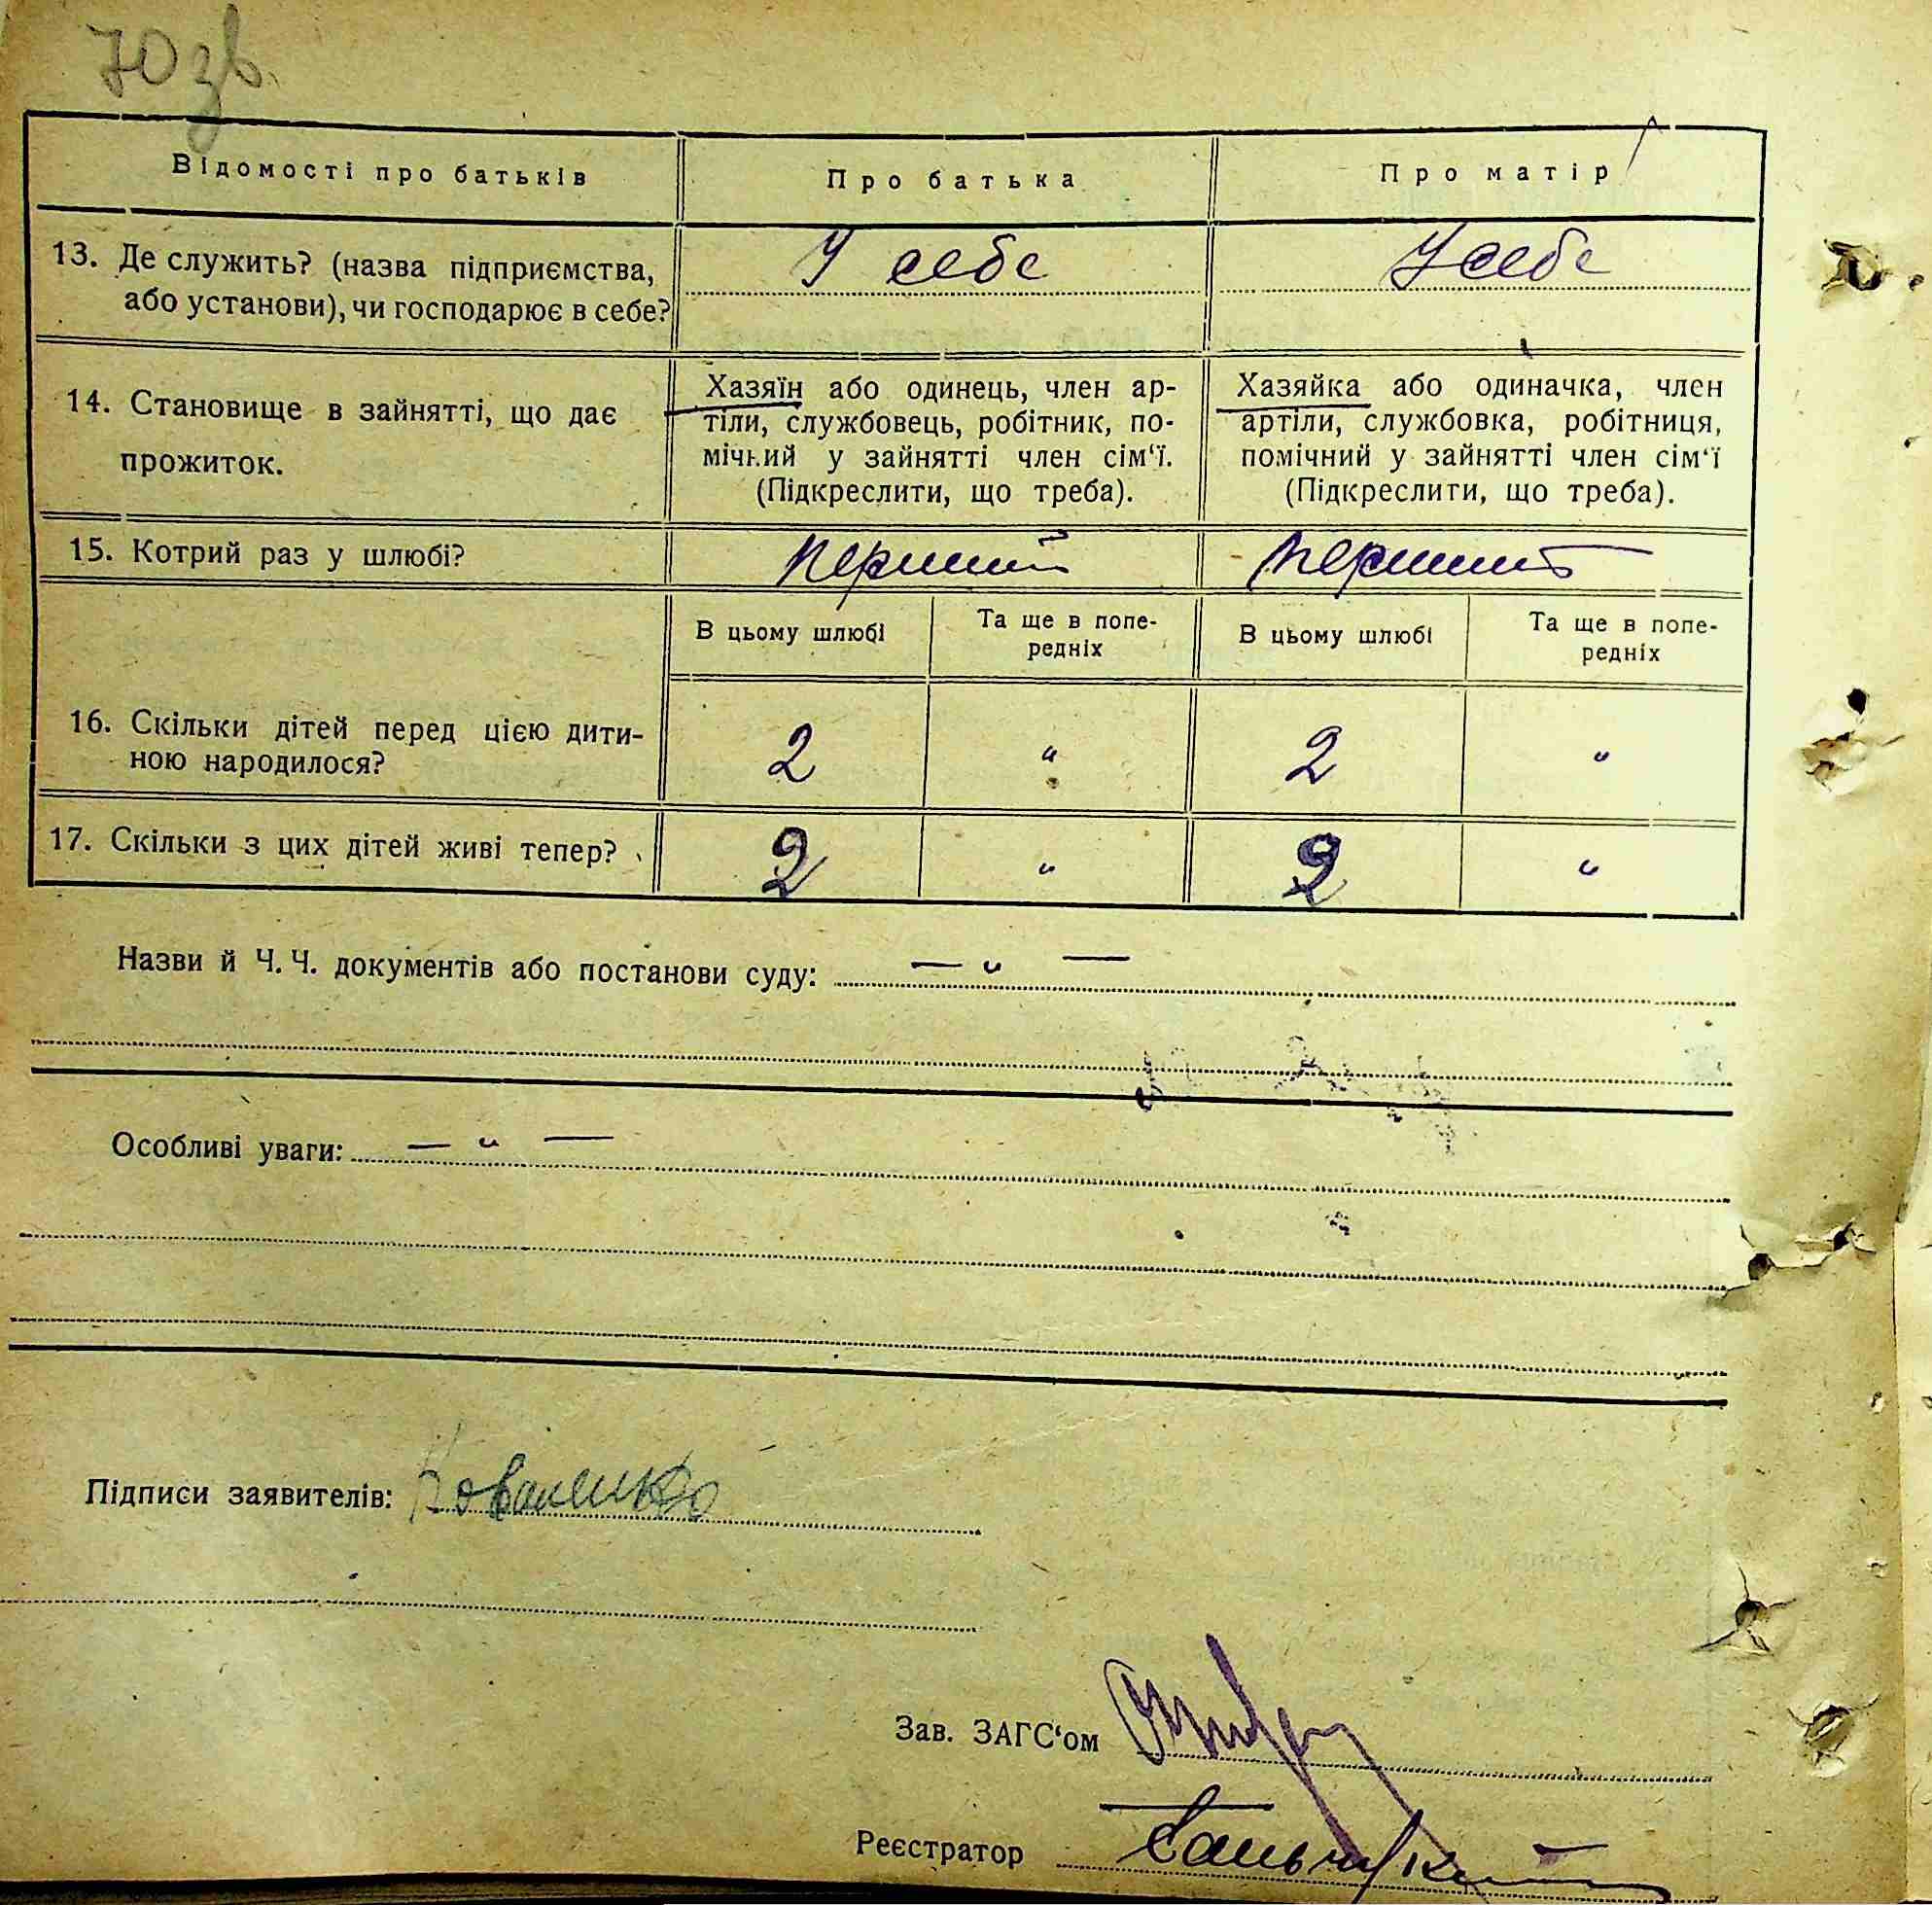 70 зв.
Відомості про батьків
Про батька
Про матір
13. Де служить? (назва підприємства,
або установи), чи господарює в себе?
У себе
У себе
14. Становище в зайнятті, що дає
прожиток.
Хазяїн або одинець, член ар-
тіли, службовець, робітник, по-
мічний у зайнятті член сім‘ї.
(Підкреслити, що треба).
Хазяйка або одиначка, член
артіли, службовка, робітниця,
помічний у зайнятті член сім‘ї
(Підкреслити, що треба).
15. Котрий раз у шлюбі?
перший
перший
В цьому шлюбі
Та ще в попе-
редніх
В цьому шлюбі
Та ще в попе-
редніх
16. Скільки дітей перед цією дити-
ною народилося?
2
"
2
"
17. Скільки з цих дітей живі тепер?
2
"
2
"
Назви й Ч. Ч. документів або постанови суду: — " —
Особливі уваги: — " —
Підписи заявителів: Коваленко
Зав. ЗАГС‘ом
Реєстратор